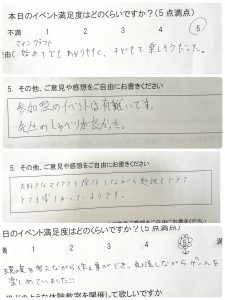 本日のイベント満足度はどのくらいですか？(5点満点)
不満 1 2 3 4 5
マインクラフト
始めてでもわかりやすく、子どもでも楽しそうだった。
5. その他、ご意見や感想をご自由にお書きください
参加型のイベントは有難いです。
先生のしゃべりがよかった。
5. その他、ご意見や感想をご自由にお書きください
大好きなマインクラフトで操作しながら勉強もできて
とても
日のイベント満足度はどのくらいですか？(5点満点)
満 1 2 3 4 5
考えながら作る事ができ、
楽しめていました!!
体験教室を開催して欲しいですか